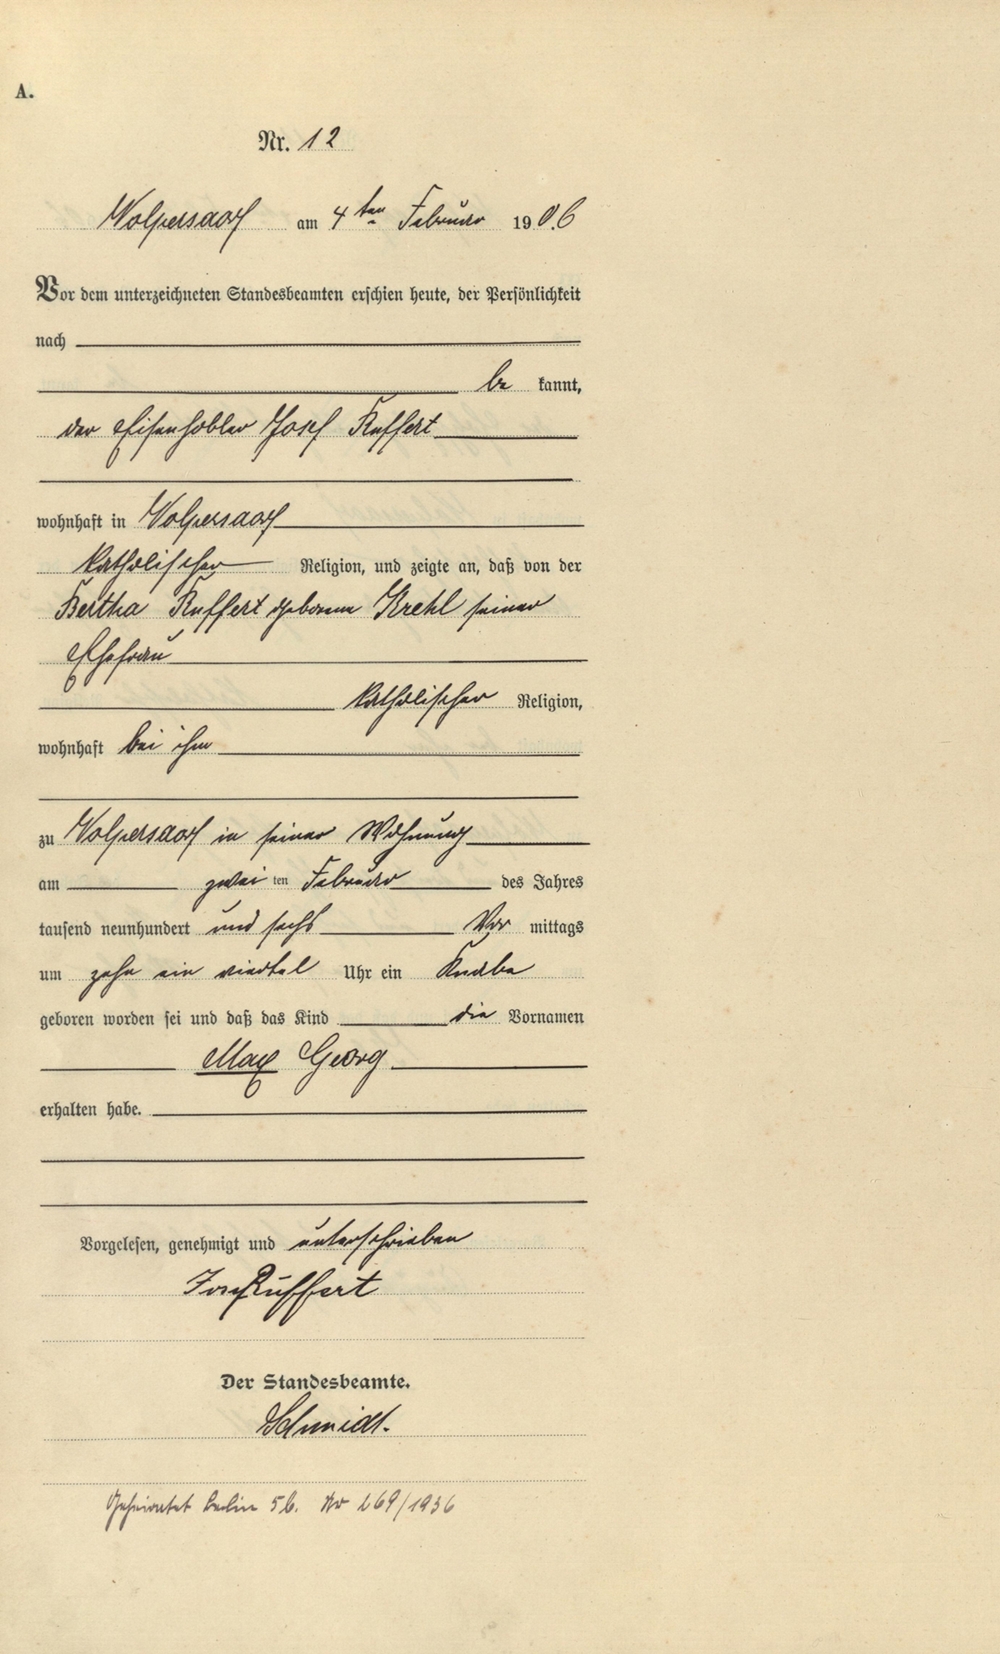 A.
Nr. 12
Volpersdorf am 4ten Februar 1906
Vor dem unterzeichneten Standesbeamten erschien heute, der Persönlichkeit
nach
be kannt,
der Eisenhobler Josef Ruffert
wohnhaft in Volpersdorf
katholischer Religion, und zeigte an, daß von der
Bertha Ruffert geborene Krehl seiner
Ehefrau
katholischer Religion,
wohnhaft bei ihm
zu Volpersdorf in seiner Wohnung
am zwei ten Februar des Jahres
tausend neunhundert und sechs Vor mittags
um zehn ein viertel Uhr ein Knabe
geboren worden sei und daß das Kind die Vornamen
Max Georg
erhalten habe.
Vorgelesen, genehmigt und unterschrieben
Josef Ruffert
Der Standesbeamte.
Schmidt.
Geheiratet Berlin 5b. No 269/1936